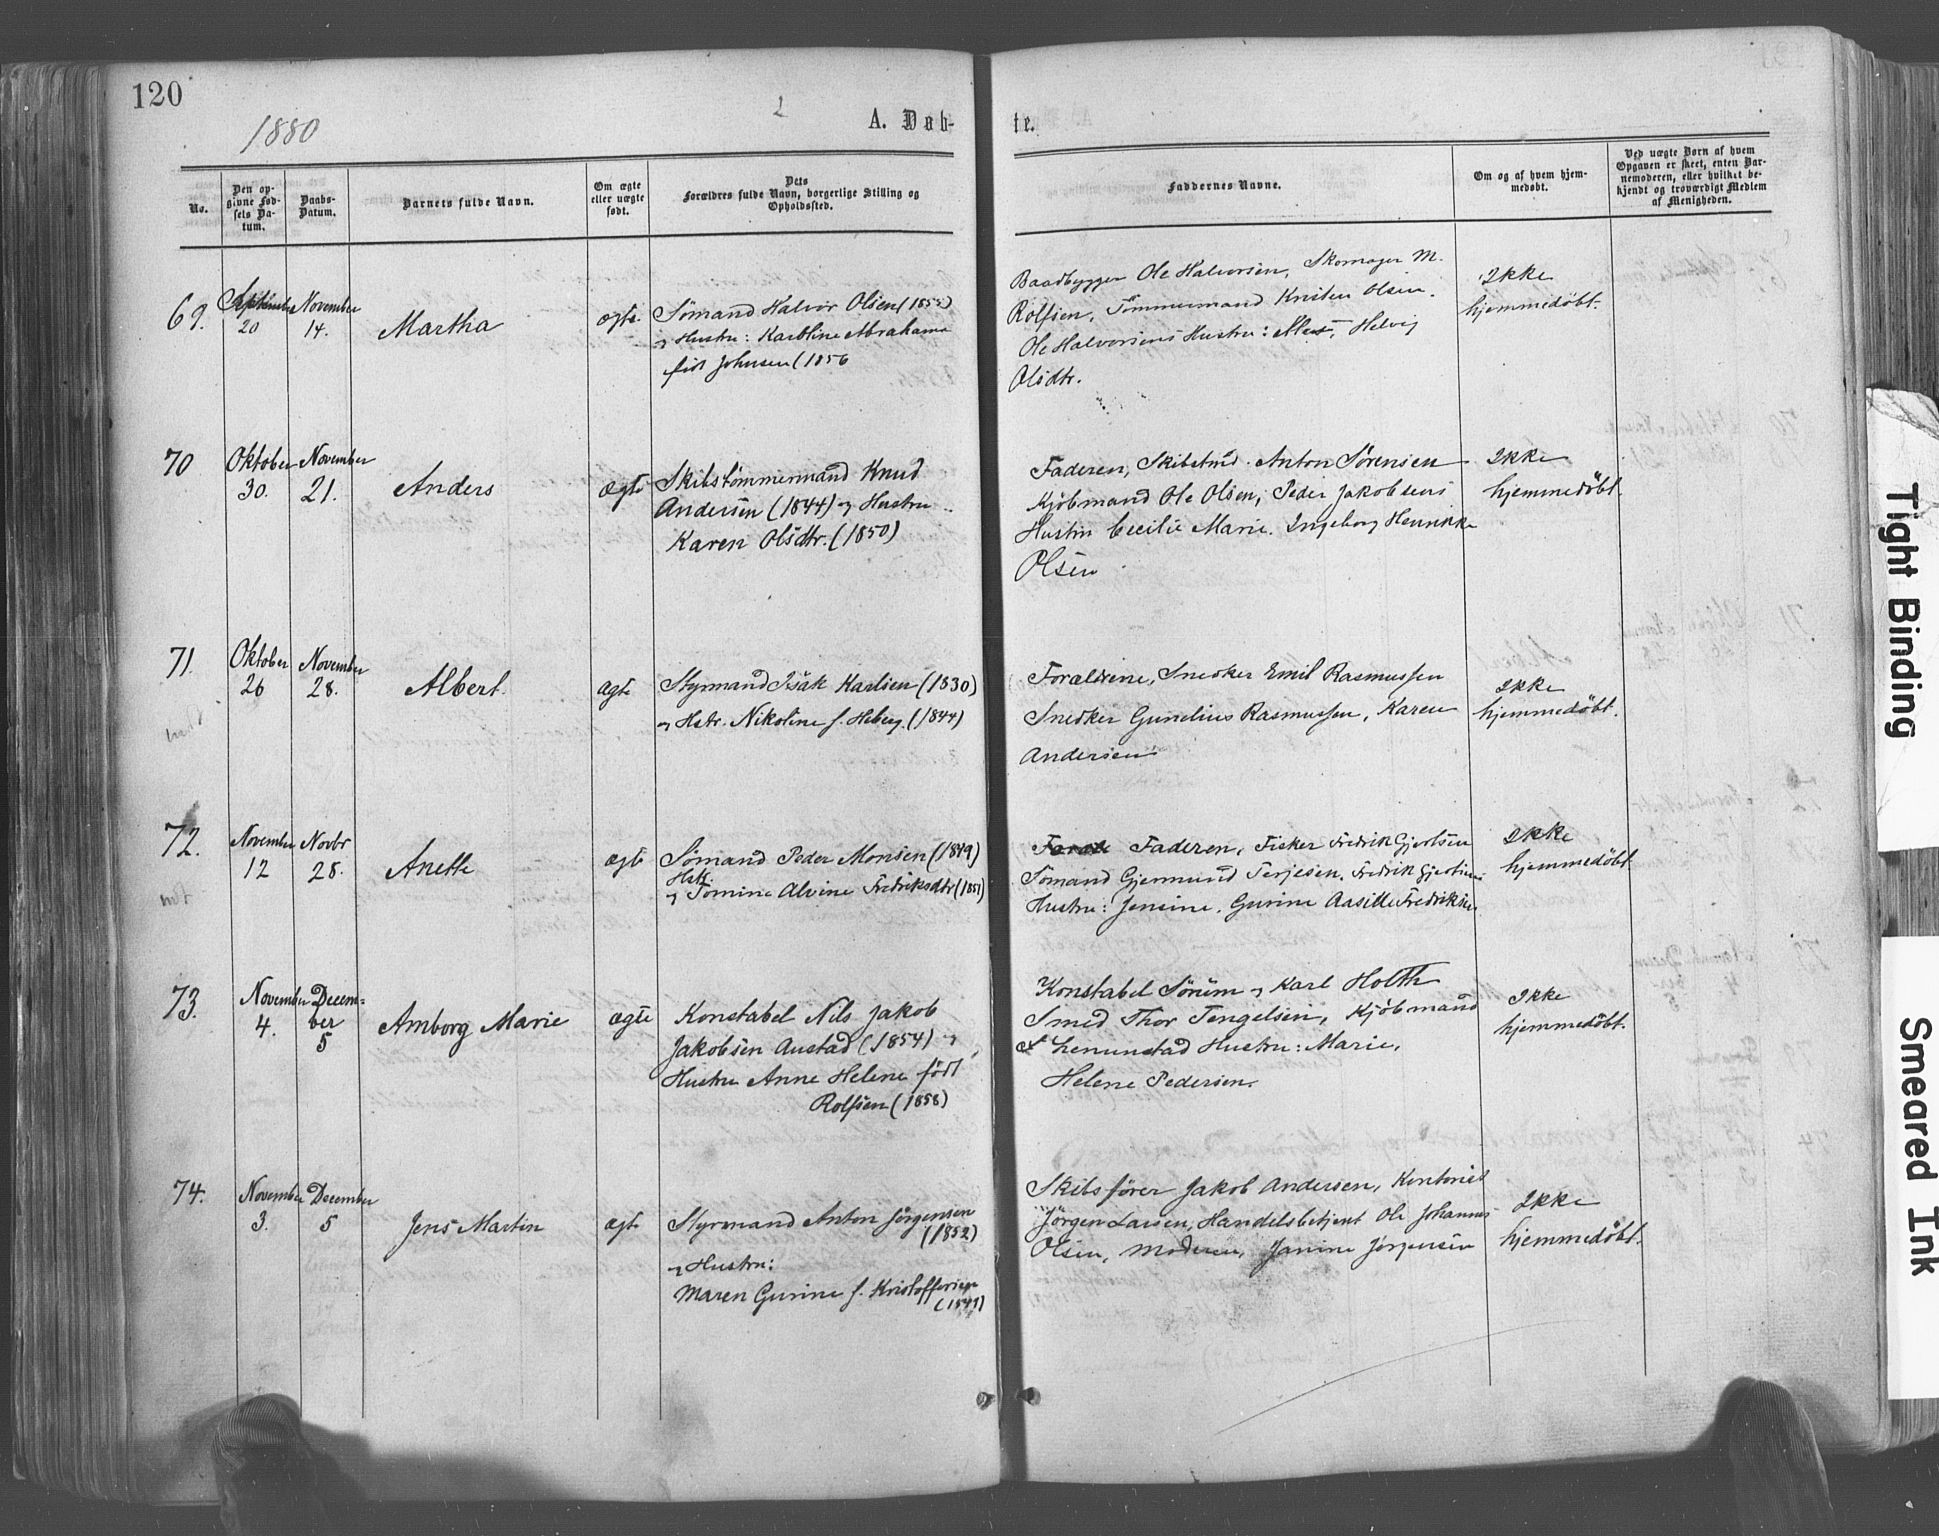 120
1880
2
A. Døb-
te.
No.
Den op-
givne Fød-
sels Da-
tum.
Daabs-
Datum.
Barnets fulde Navn.
Om ægte
eller uægte
født.
Dets
Forældres fulde Navn, borgerlige Stilling og
Opholdssted.
Faddernes Navne.
Om og af hvem hjem-
medøbt.
Ved uægte Børn af hvem
Opgaven er skeet, enten Bar-
nemoderen, eller hvilket be-
kjendt og troværdigt Medlem
af Menigheden.
69.
September
20
November
14.
Martha
ægte
Sømand Halvor Olsen (1855)
og Hustru: Karoline Abrahama
født Johnsen (1856
Baadbygger Ole Halvorsen, Skomager M.
Rolfsen, Tømmermand Kristen Olsen.
Ole Halvorsens Hustru: Helvig
Olsdtr.
Ikke
hjemmedöbt.
70
Oktober
30.
November
21.
Anders
ægte
Skibstømmermand Knud
Andersen (1844) og Hustru
Karen Olsdtr. (1850)
Faderen, Skibstmd. Anton Sørensen
Kjöbmand Ole Olsen, Peder Jakobsens
Hustru Cecilie Marie. Ingeborg Henrikke
Olsen
Ikke
hjemmedöbt.
71.
Oktober
26
November
28.
Albert.
ægte
Styrmand Isak Karlsen (1830)
og Hstr. Nikoline f. Heberg. (1844)
Forældrene, Snedker Emil Rasmussen
Snedker Gunelius Rasmussen, Karen
Andersen
Ikke
hjemmedöbt.
72.
November
12
Novbr
28.
Anette
ægte
Sømand Peder Monsen (1849)
Hst.
og Tomine Alvine Fredriksdtr (1851)
Faderen, Fisker Fredrik Gjertsen
Sømand Gjermund Terjesen. Fredrik Gjertsens
Hustru: Jensine. Gurine Aasille Fredriksen
Ikke
hjemmedöbt.
73.
November
4.
Decem-
ber
5
Amborg Marie
ægte
Konstabel Nils Jakob
Jakobsen Austad (1854) og
Hustru Anne Helene født
Rolfsen (1858)
Konstabel Sörum og Karl Holth
Smed Thor Tengelsen, Kjöbmand
Lenunstad Hustru: Marie,
Helene Pedersen.
Ikke
hjemmedöbt.
74.
November
3.
December
5
Jens Martin
ægte
Styrmand Anton Jörgensen
(1852)
og Hustru:
Maren Gurine f. Kristoffersen
(1849)
Skibsförer Jakob Andersen, Kontorist
Jörgen Larsen, Handelsbetjent Ole Johannes
Olsen, Moderen, Janine Jörgensen
Ikke
hjemmedöbt.
Tight Binding
Smeared Ink